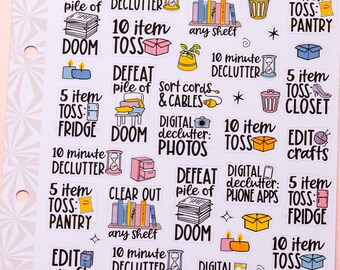 pile of
DOOM
DECLUTTER
10 item
TOSS:
any shelf
TOSS:
PANTRY
10 minute
DECLUTTER
DEFEAT
pile of
DOOM
Sort cords
& CABLES
5 item
TOSS:
CLOSET
5 item
TOSS:
FRIDGE
DIGITAL
declutter:
PHOTOS
10 item
TOSS:
EDIT
crafts
10 minute
DECLUTTER
5 item
TOSS:
PANTRY
CLEAR OUT
any shelf
DEFEAT
pile of
DOOM
DIGITAL
declutter:
PHONE APPS
5 item
TOSS:
FRIDGE
EDIT
10 minute
DECLUTTER
10 item
TOSS:
DEFEAT